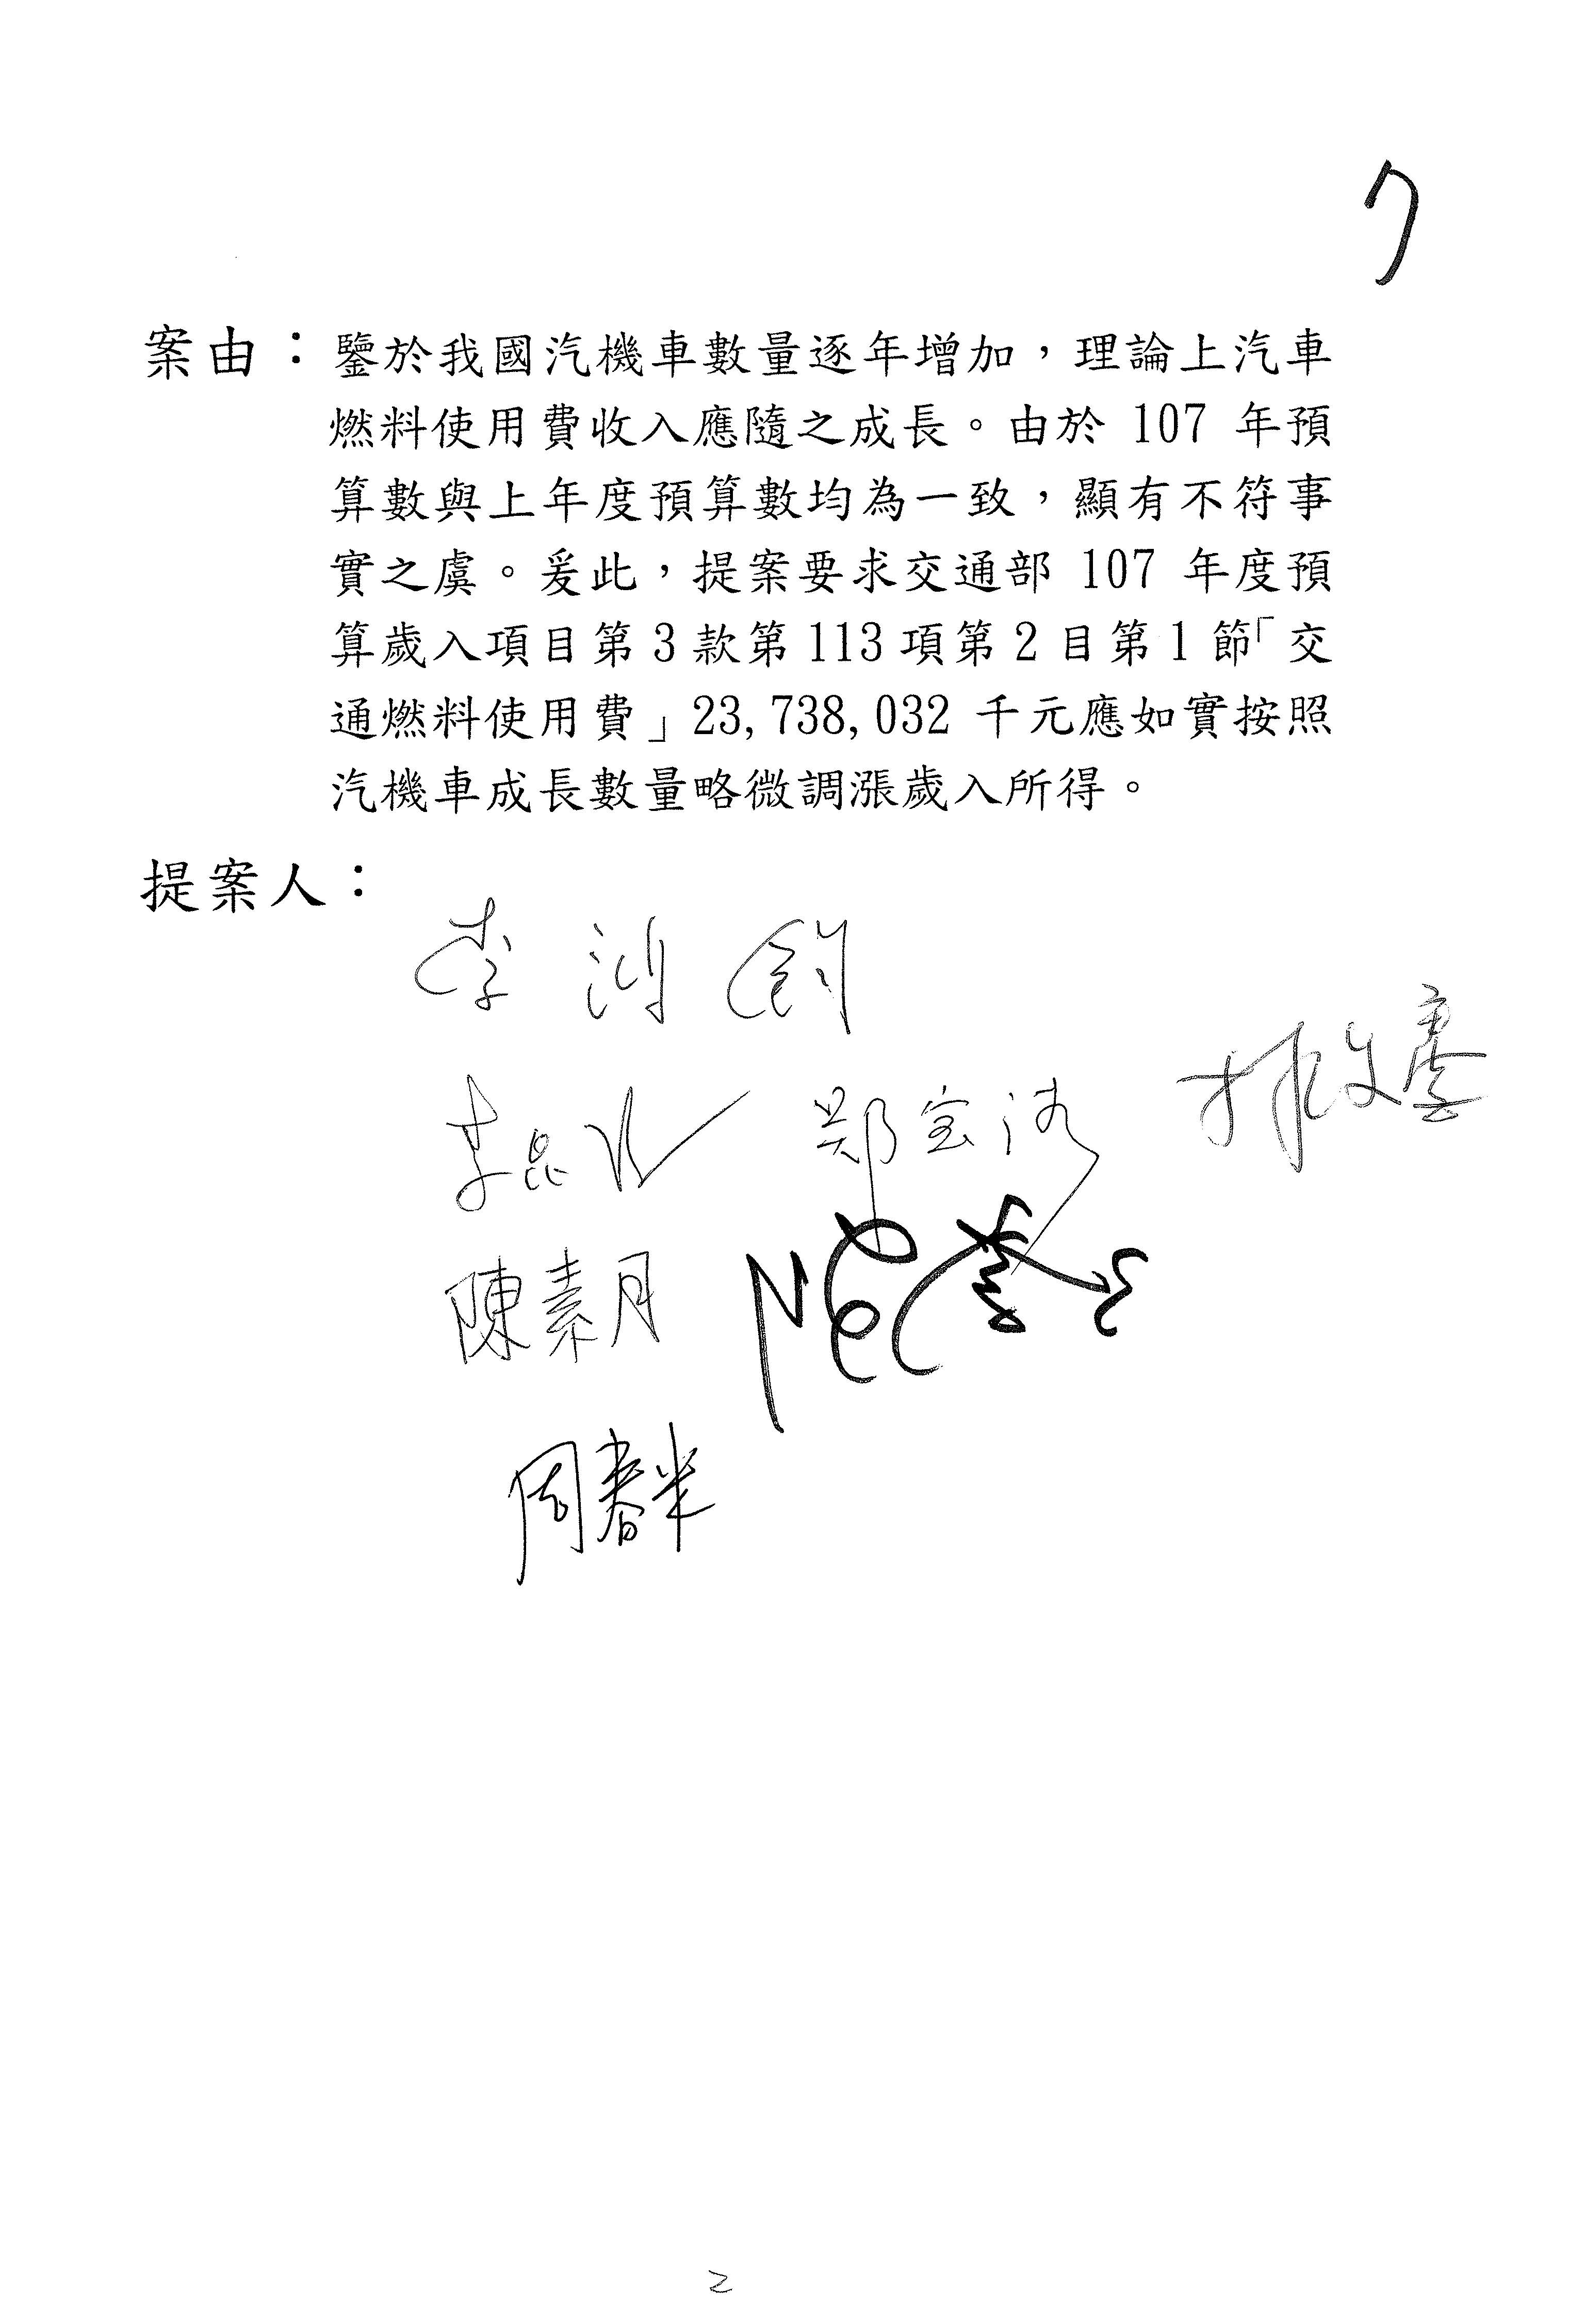 7
案由：鑒於我國汽機車數量逐年增加，理論上汽車
燃料使用費收入應隨之成長。由於 107 年預
算數與上年度預算數均為一致，顯有不符事
實之虞。爰此，提案要求交通部 107 年度預
算歲入項目第 3 款第 113 項第 2 目第 1 節「交
通燃料使用費」23,738,032 千元應如實按照
汽機車成長數量略微調漲歲入所得。
提案人：
李鴻鈞
李昆 鄭宝清
陳素月
周春米
2